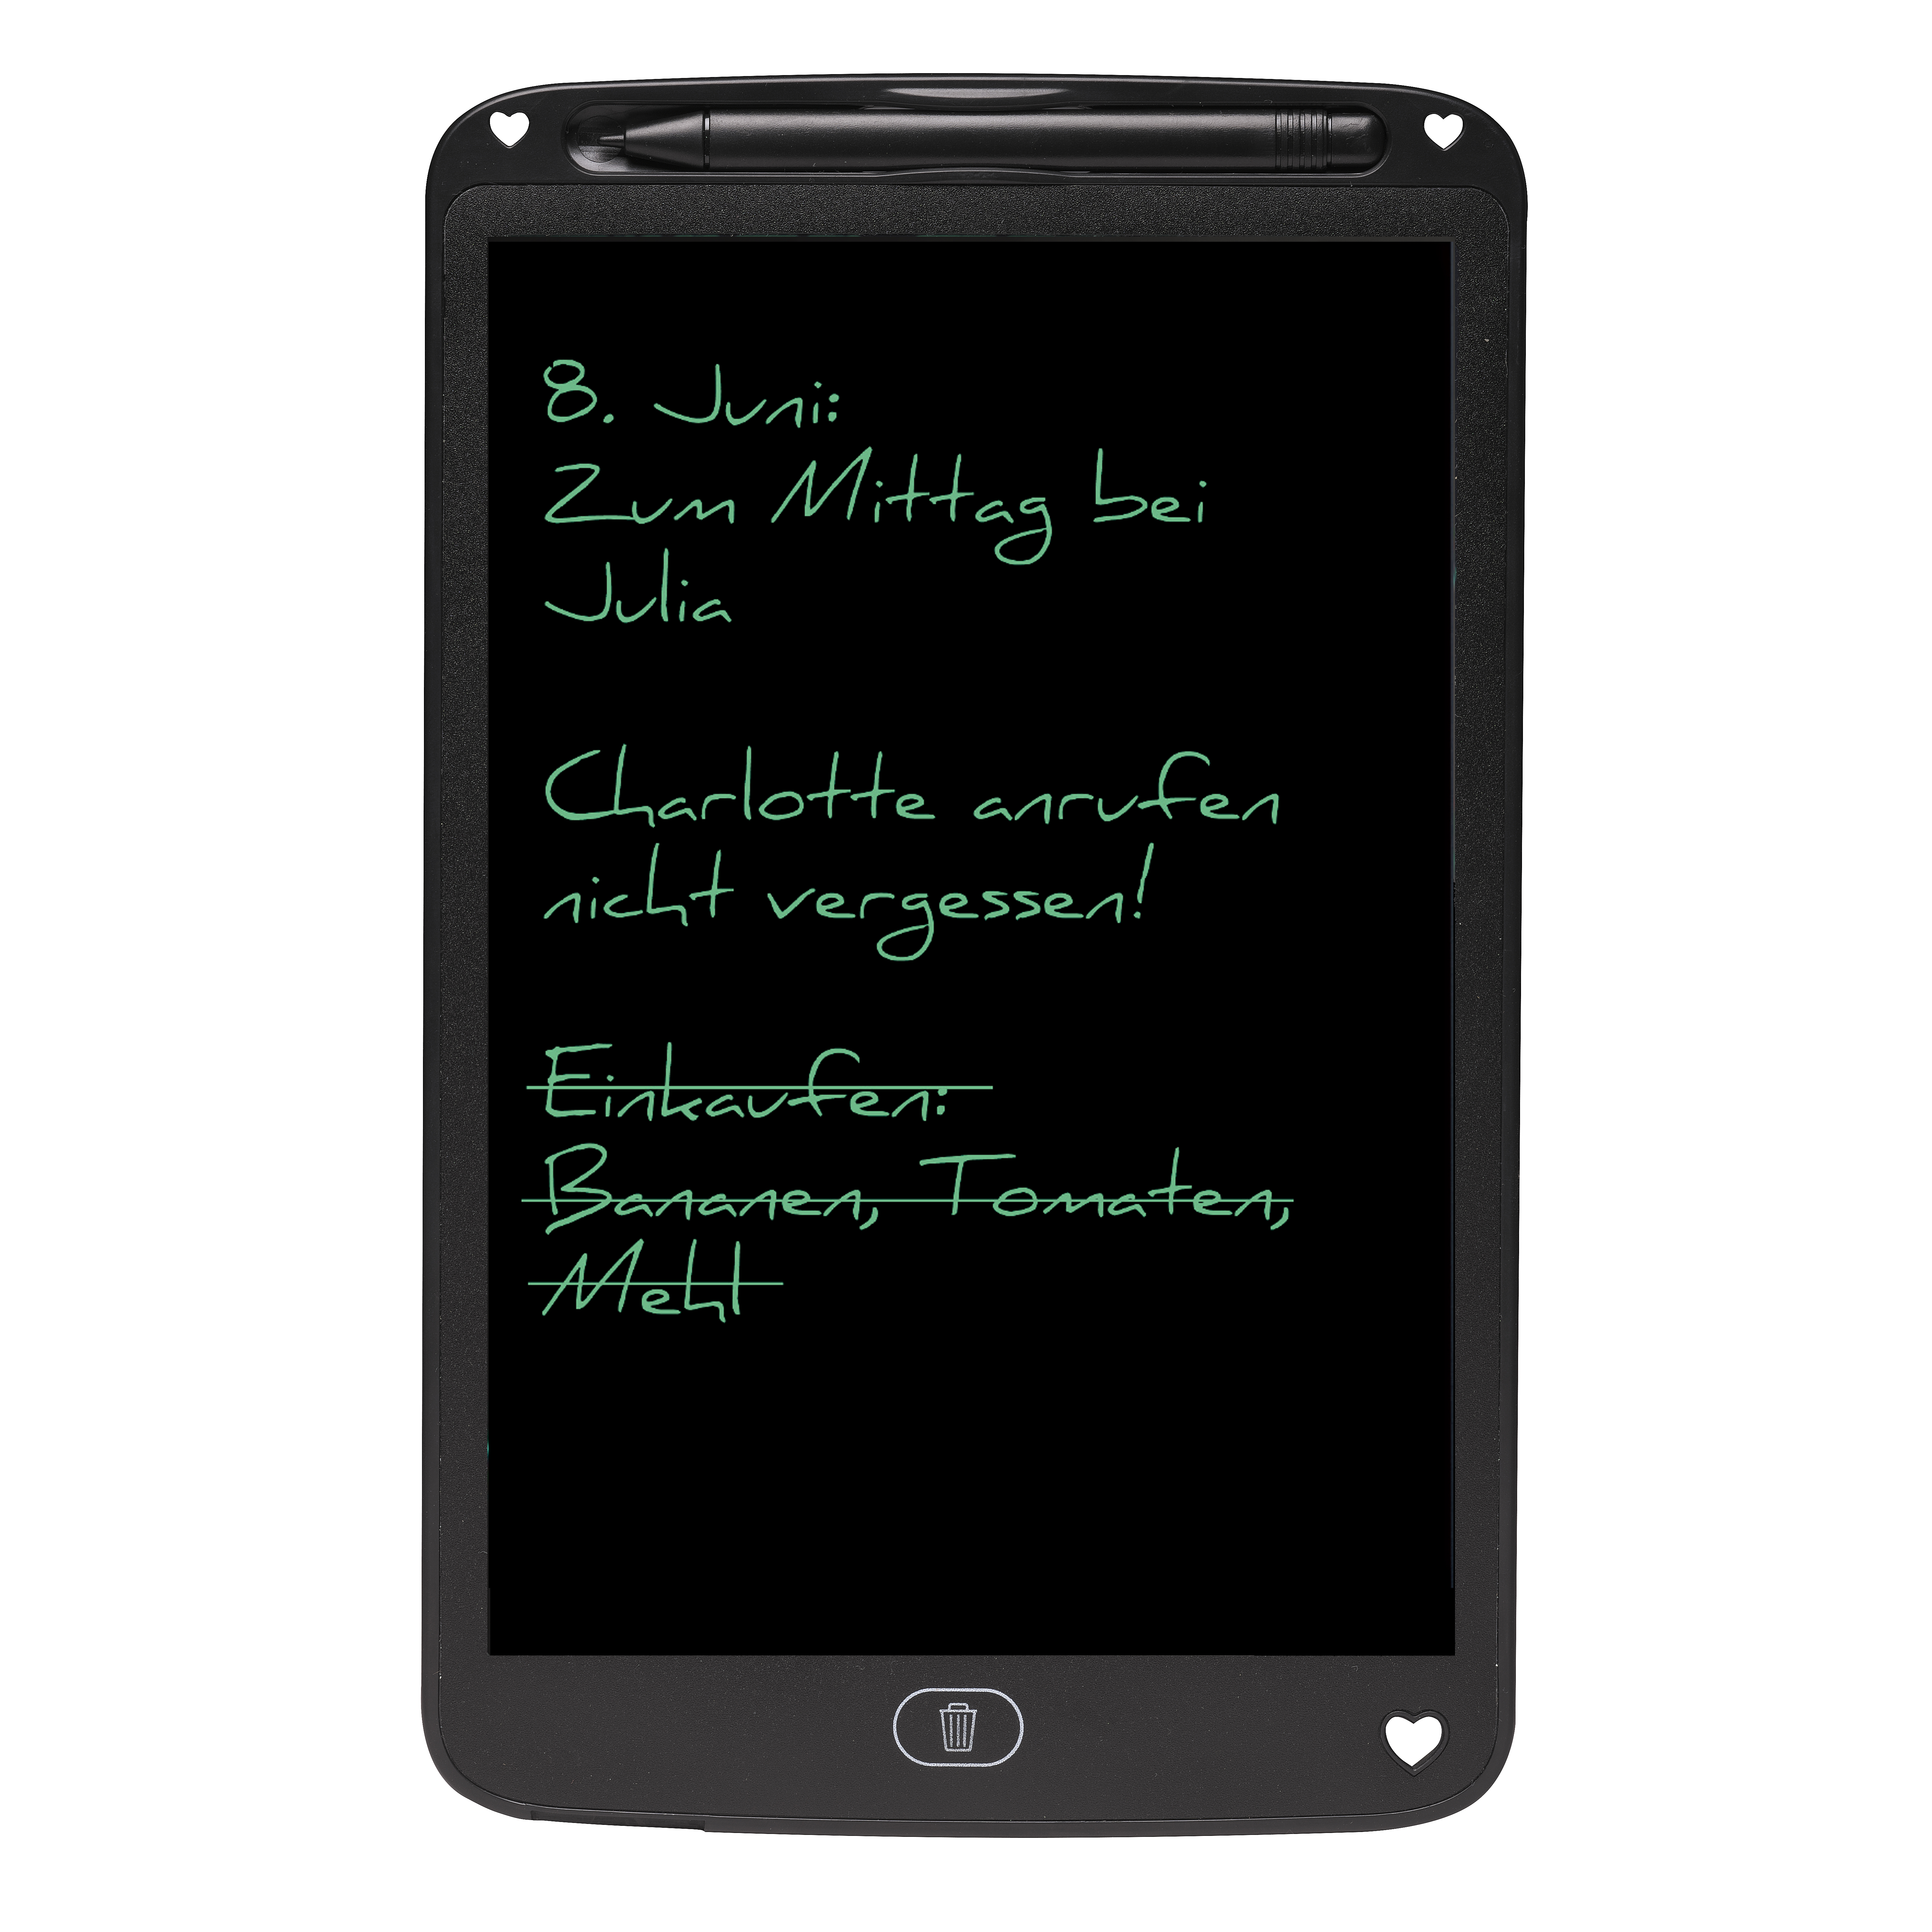 8. Juni:
Zum Mittag bei
Julia
Charlotte anrufen
nicht vergessen!
Einkaufen:
Bananen, Tomaten,
Mehl